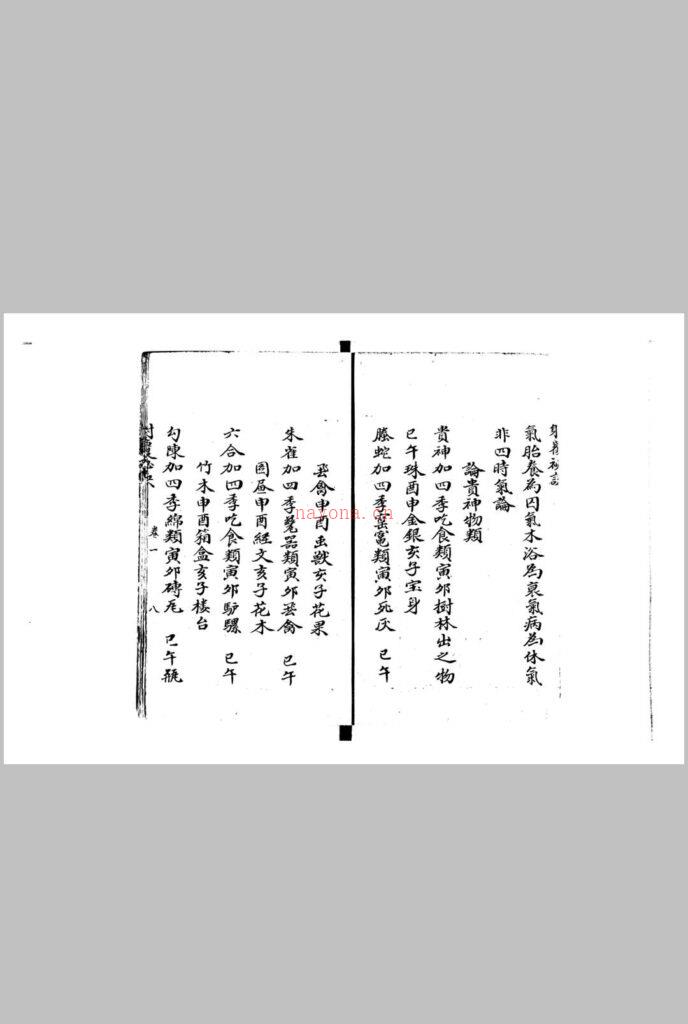 氣胎養為囚氣沐浴為衰氣病為休氣
非四時氣論
論貴神物類
貴神加四季吃食類寅卯樹林出之物
巳午珠酉申金銀亥子宝身
螣蛇加四季 類寅卯死灰 巳午
飛禽申酉虫獸亥子花果
朱雀加四季 器類寅卯飛禽 巳午
圖画申酉経文亥子花木
六合加四季吃食類寅卯馿騾 巳午
竹木申酉箱盒亥子楼台
勾陳加四季綿類寅卯磚瓦 巳午瓶
卷一
八
nayona.cn